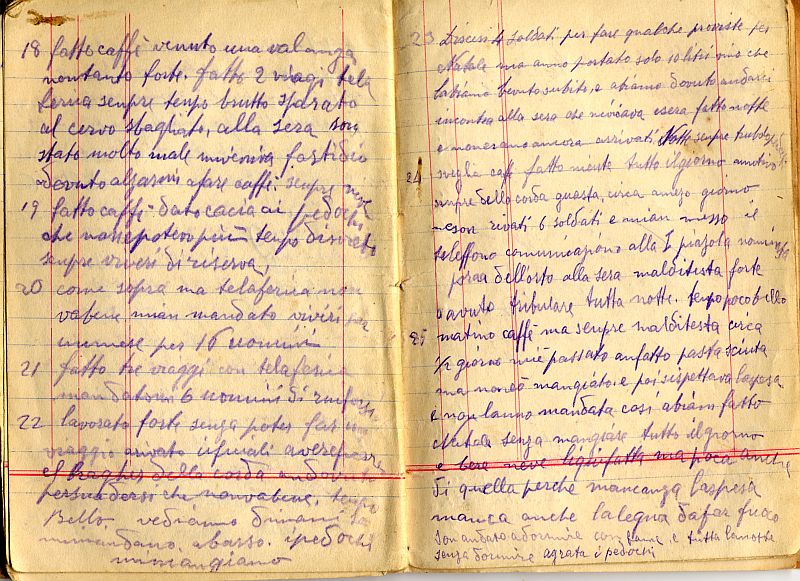 18 fatto caffè venuto una valanga
non tanto forte. fatto 2 viagi tela
ferua senpre tenpo brutto sparato
al cervo sbagliato, alla sera sono
stato molto male mi veniva fastidio
devuto alzarmi a fare caffè. senpre neve
19 fatto caffè dato cacia ai pedochi
che non se poteva più tenpo discreto
senpre viveri di riserva,
20 come sopra ma telaferica non
va bene mian mandato viviri
un mese per 16 uomini
21 fatto tre viaggi con telaferica
mandatomi 6 uomini di rinforso
22 lavorato forte senza poter far un
viaggio arivato
della corda andovuto
persuadersi che non va bene, tenpo
Bello. vediamo dimani se
mi mandano abasso. i pedochi
mi mangiano
23 Discesi 4 soldati per fare qualche proviste per
Natale ma anno portato solo 10 litri vino che
labiamo bevuto subito, e abiamo dovuto andarci
incontra alla sera che neviava e sera fatto notte
e non erano ancora arrivati, Notte senpre
sveglia caff
24 fatto niente tutto il giorno a motivo
senpre dello corda guasta, circa a mezo giorno
ne son rivati 6 soldati e mian messo il
teleffono comunicazione alla I piazola nomi
dell'orto alla sera maldi testa forte
o avuto tribulare tutta notte. tenpo poco bello
25 matino caffè ma senpre mal di testa circa
½ giorno mi è passato an fatto pasta sciuta
ma non eò mangiato, e poi si spettava la spesa
e non lanno mandata così abiam fatto
Natale senza mangiare tutto il giorno
e bere neve ligui fatta ma poca anche
di quella perchè mancanza la spesa
manca anche la legna da far fuoco
son andato a dormire con fame e tutta la notte
senza dormire a grata i pedochi